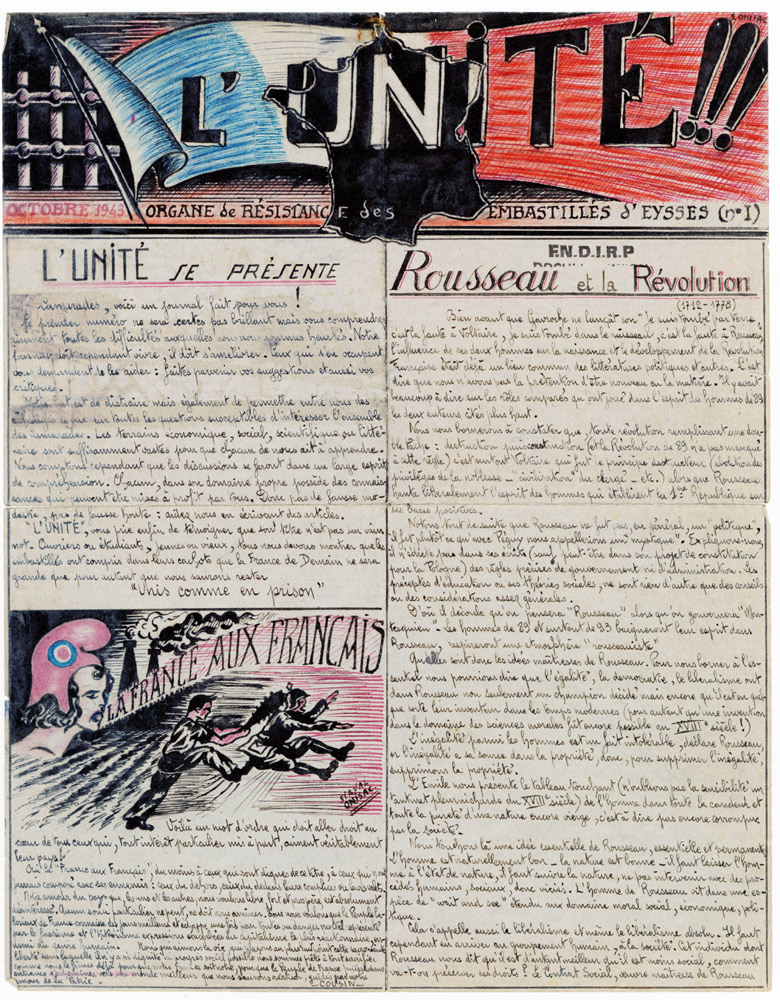 S. ONIFAC
L'UNiTÉ!!!
OCTOBRE 1943 ORGANE de RÉSISTANCE des EMBASTILLÉS d'EYSSES (n°1)
L'UNITÉ SE PRÉSENTE
Camarades, voici un journal fait pour vous !
Le premier numéro ne sera certes pas brillant mais vous comprendrez
aisément toutes les difficultés auxquelles nous nous sommes heurtés. Notre
journal doit cependant vivre, il doit s'améliorer. Ceux qui s'en occupent
vous demandent de les aider : faites parvenir vos suggestions et aussi vos
critiques.
Notre but est de distraire mais également de permettre entre nous des
sur toutes les questions susceptibles d'intéresser l'ensemble
des camarades. Les terrains économique, social, scientifique ou litté-
raire sont suffisamment vastes pour que chacun de nous ait à apprendre.
Nous comptons cependant que les discussions se feront dans un large esprit
de compréhension. Chacun, dans son domaine propre possède des connais-
sances qui peuvent être mises à profit par tous. Donc pas de fausse mo-
destie, pas de fausse honte : aidez nous en écrivant des articles.
"L'UNITÉ", vous prie enfin de témoigner que son titre n'est pas un vain
mot. Ouvriers ou étudiants, jeunes ou vieux, tous nous devons montrer que les
embastillés ont compris dans leurs cachots que la France de Demain ne sera
grande que pour autant que nous saurons rester
"Unis comme en prison"
LA FRANCE AUX FRANÇAIS
ONIFAC
Voilà un mot d'ordre qui doit aller droit au
cœur de tous ceux qui, tout intérêt particulier mis à part, aiment véritablement
leur pays !
Oui la "France aux Français", du moins à ceux qui sont dignes de ce titre, à ceux qui n'ont
jamais composé avec ses ennemis : ceux du dehors, ceux du dedans
COUSIN
F.N.D.I.R.P
Rousseau et la Révolution
(1712-1778)
Bien avant que Gavroche ne lançât son "Je suis tombé par terre
c'est la faute à Voltaire, je suis tombé dans le ruisseau, c'est la faute à Rousseau,
l'influence de ces deux hommes sur la naissance et le développement de la Révolution
Française était déjà un lieu commun des littératures politiques et autres. C'est
dire que nous n'avons pas la prétention d'être nouveau en la matière. Il y aurait
beaucoup à dire sur les rôles comparés qu'ont joué dans l'esprit des hommes de 89
les deux auteurs cités plus haut.
Nous nous bornerons à constater que, toute révolution remplissant une dou-
ble tâche : destruction puis construction (et la Révolution de 89 n'a pas manqué
à cette règle) c'est surtout Voltaire qui fut le principe destructeur (abolition des
privilèges de la noblesse - "civilisation" du clergé - etc.) alors que Rousseau
hanta littéralement l'esprit des hommes qui établirent la 1ère République sur
ses bases positives.
Notons tout de suite que Rousseau ne fut pas, en général, un "politique",
il fut plutôt ce qu'avec Péguy nous appellerions un "mystique". Expliquons-nous,
il n'édicte pas dans ses écrits (sauf peut-être dans son projet de constitution
pour la Pologne) des règles précises de gouvernement ni d'administration. Ses
préceptes d'éducation ou ses théories sociales, ne sont rien d'autre que des conseils
ou des considérations assez générales.
D'où il découle qu'on "pensera" "Rousseau" alors qu'on gouvernera "Mon-
tesquieu". Les hommes de 89 et surtout de 93 baigneront leur esprit dans
Rousseau, respireront une atmosphère "rousseauiste".
Quelles sont donc les idées maîtresses de Rousseau. Pour nous borner à l'es-
sentiel nous pourrions dire que l'égalité, la démocratie, le libéralisme ont
dans Rousseau non seulement un champion décidé mais encore qu'il est en quel-
que sorte leur inventeur dans les temps modernes (pour autant qu'une invention
dans le domaine des sciences morales fût encore possible au XVIIIe siècle !)
L'inégalité parmi les hommes est un fait intolérable, déclare Rousseau,
or l'inégalité a sa source dans la propriété, donc, pour supprimer l'inégalité,
supprimons la propriété.
L'Émile nous présente le tableau touchant (n'oublions pas la sensibilité un
tantinet pleurnicharde du XVIIIe siècle) de l'homme dans toute la candeur et
toute la pureté d'une nature encore vierge, c'est à dire pas encore corrompue
par la société.
Nous touchons là une idée essentielle de Rousseau, essentielle et permanente
L'homme est naturellement bon - la nature est bonne - il faut laisser l'hom-
me à l'état de nature, il faut suivre la nature, ne pas intervenir avec des pro-
cédés humains, sociaux, donc viciés. L'homme de Rousseau vit dans une es-
pèce de "wait and see" étendu aux domaines moral social, économique, poli-
tique.
Cela s'appelle aussi le libéralisme et même le libéralisme absolu. Il faut
cependant en arriver au groupement humain, à la société. Cet individu dont
Rousseau nous dit qu'il est d'autant meilleur qu'il est moins social, comment
va-t-on préserver ses droits ? Le Contrat Social, œuvre maîtresse de Rousseau